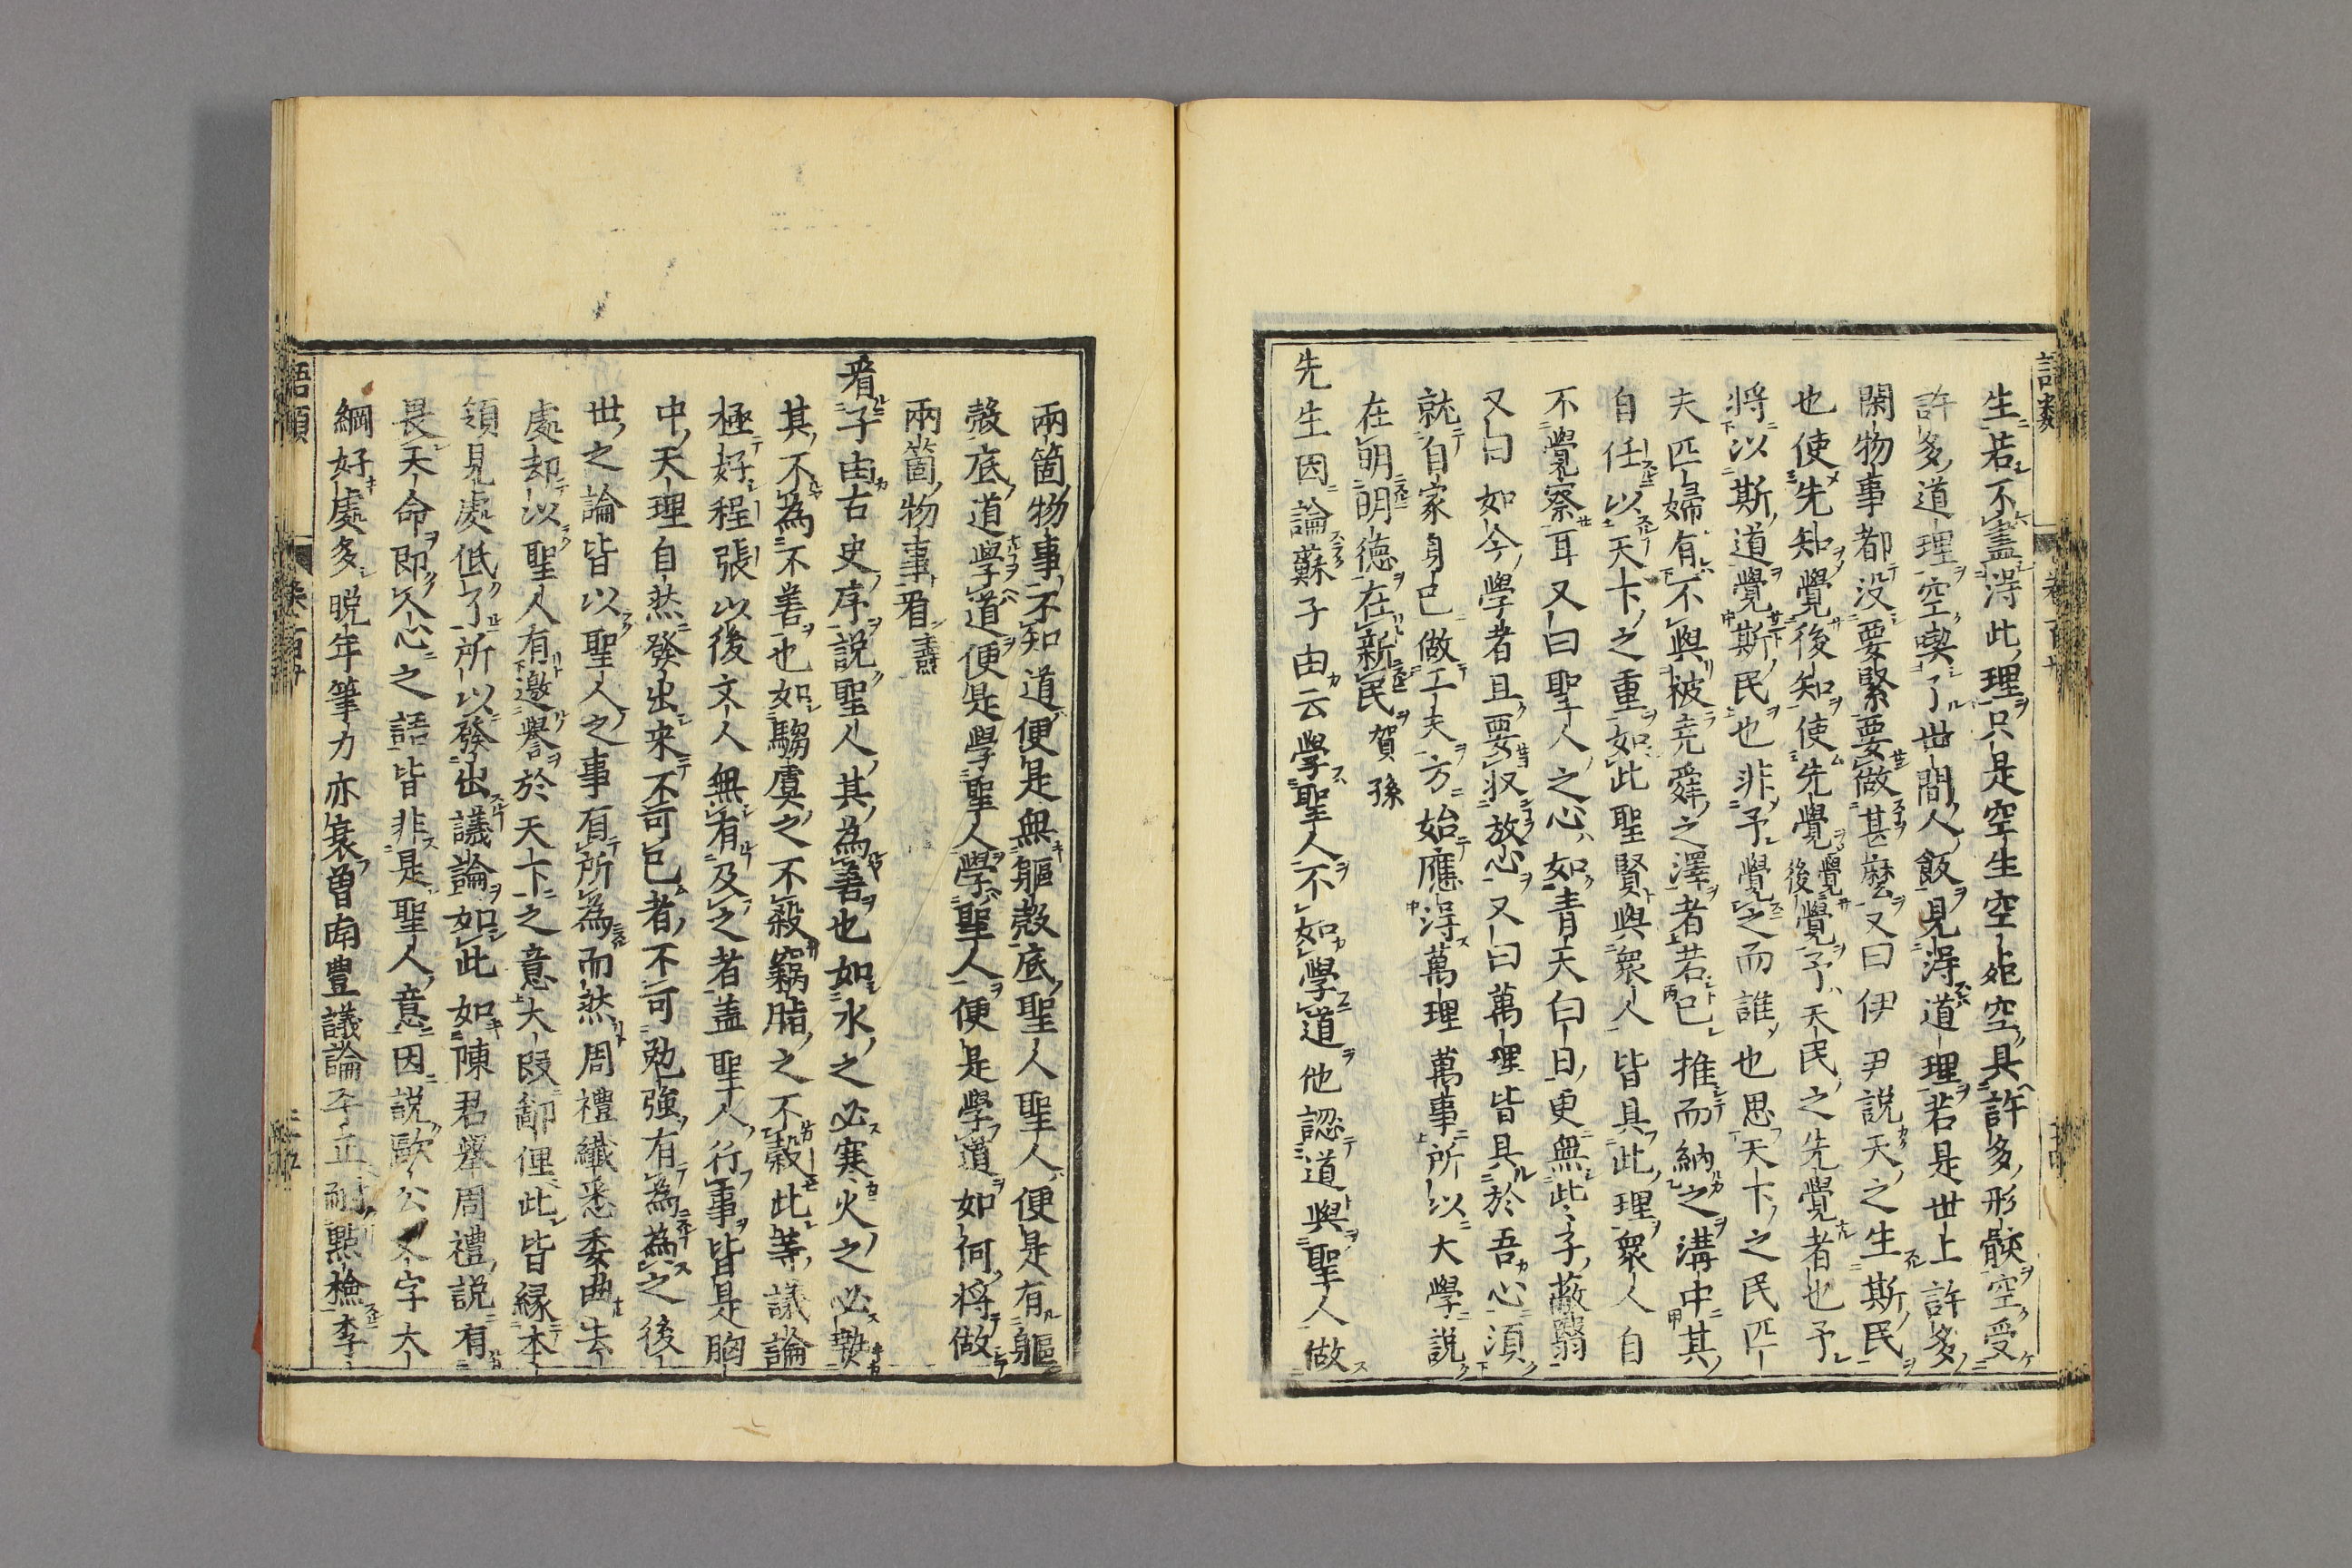 生若不盡得此理只是空生空死空具許多形骸空受
許多道理空喫了世間人飯見得道理若是世上許多
閑物事都没要緊要做甚麼又曰伊尹說天之生斯民
也使先知覺後知使先覺覺後覺予天民之先覺者也予
將以斯道覺斯民也非予覺之而誰也思天下之民匹
夫匹婦有不與被堯舜之澤者若已推而納之溝中其
自任以天下之重如此聖賢與衆人皆具此理衆人自
不覺察耳又曰聖人之心如青天白日更無些子蔽翳
又曰如今學者且要収放心又曰萬理皆具於吾心須
就自家身已做工夫方始應得萬理萬事所以大學說
在明明德在新民賀孫
先生因論蘇子由云學聖人不如學道他認道與聖人做
兩箇物事不知道便是無軀殼底聖人聖人便是有軀
殼底道學道便是學聖人學聖人便是學道如何將做
兩箇物事看燾
看子由古史序說聖人其為善也如水之必寒火之必熱
其不為不善也如騶虞之不殺竊脂之不穀此等議論
極好程張以後文人無有及之者蓋聖人行事皆是胸
中天理自然發出来不可已者不可勉強有為為之後
世之論皆以聖人之事有所為而然周禮纖悉委曲去
處却以聖人有邀譽於天下之意大段鄙俚此皆緣本
領見處低了所以發出議論如此如陳君舉周禮說有
畏天命即人心之語皆非是聖人意因說歐公文字大
綱好處多晩年筆力亦衰曽南豊議論平正耐點檢李
語類
卷百